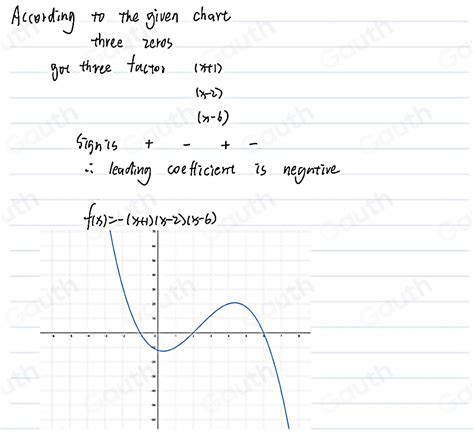 According to the given chart
three zeros
got three factor (x+1)
(x-2)
(x-6)
Sign is + - + -
∴ leading coefficient is negative
f(x)=-(x+1)(x-2)(x-6)
Gauth